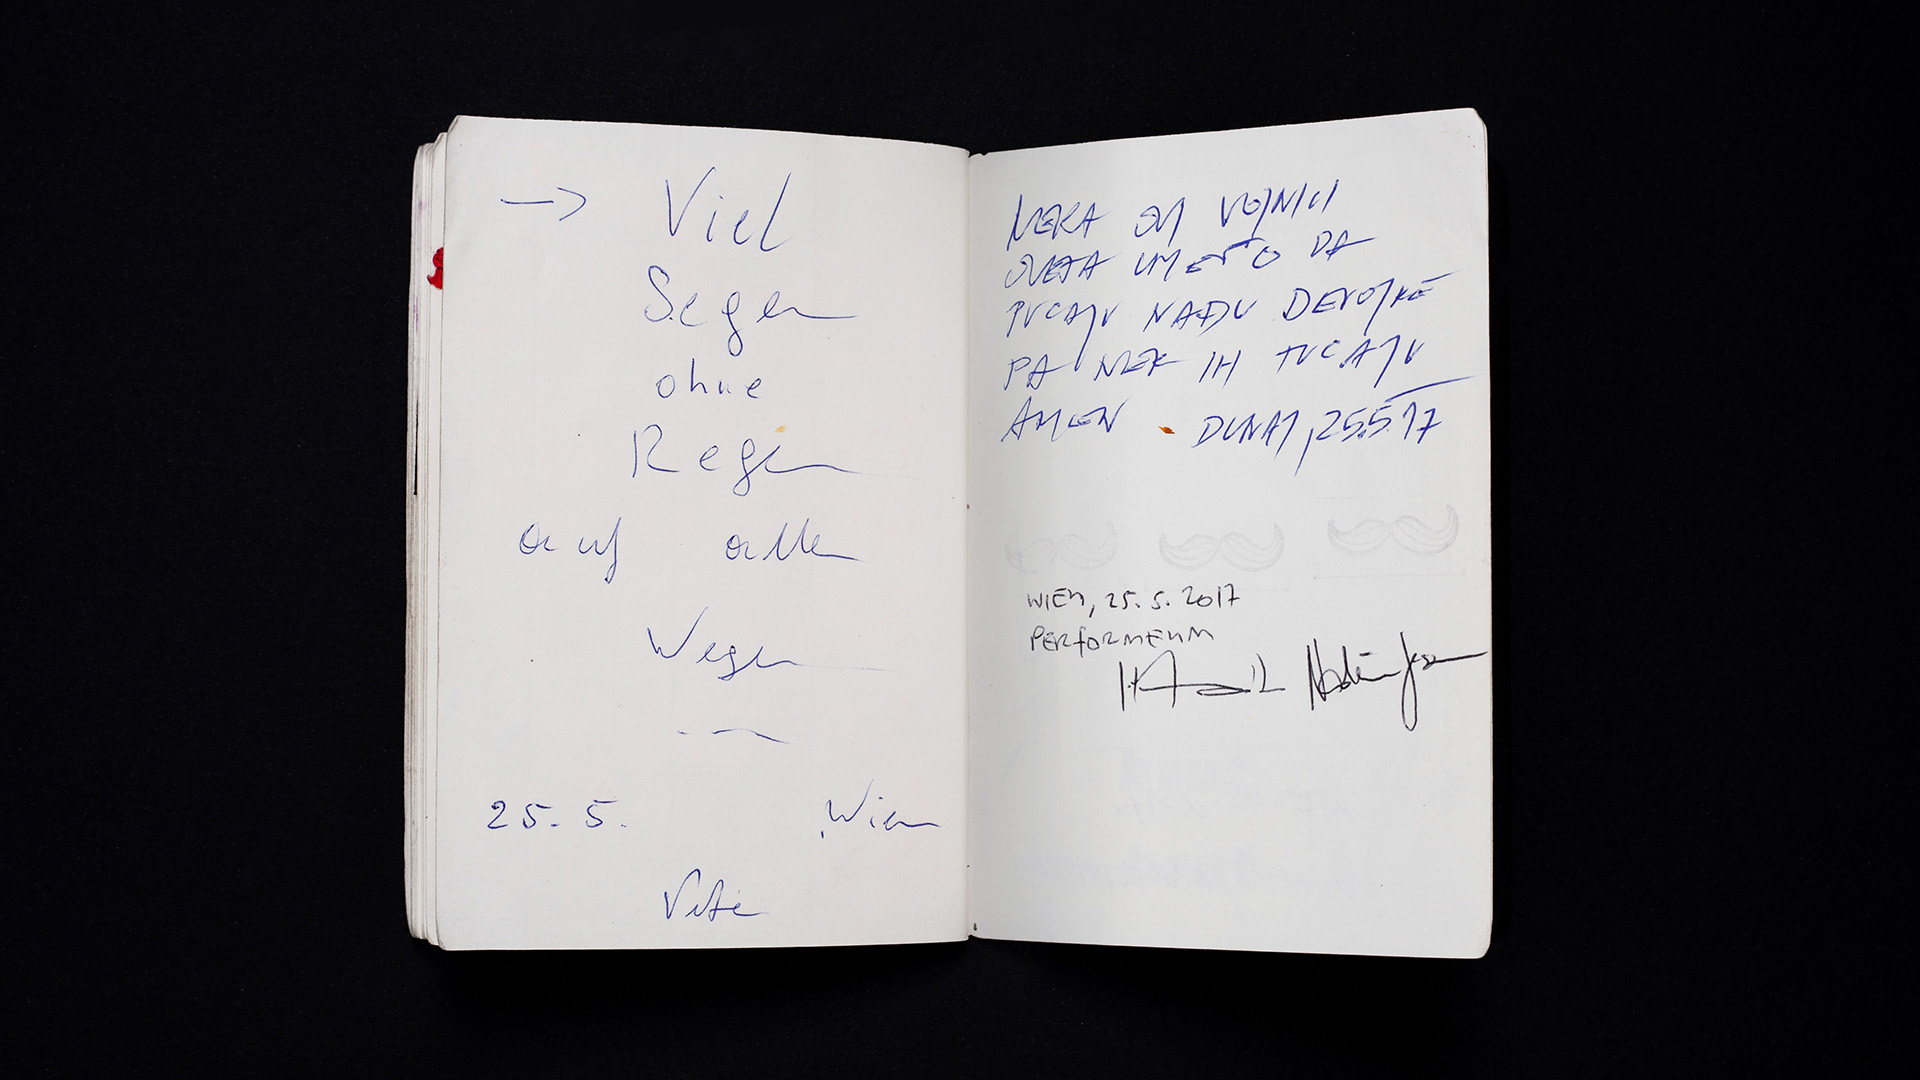 → Viel
Segen
ohne
Regen
auf allen
Wegen
25. 5. Wien
NEKA SVI VOJNICI
SVETA UMESTO DA
PUCAJU NAĐU DEVOJKE
PA NEK IH TUCAJU
AMEN - DUNAJ, 25.5.17
WIEN, 25. 5. 2017
PERFORMEUM